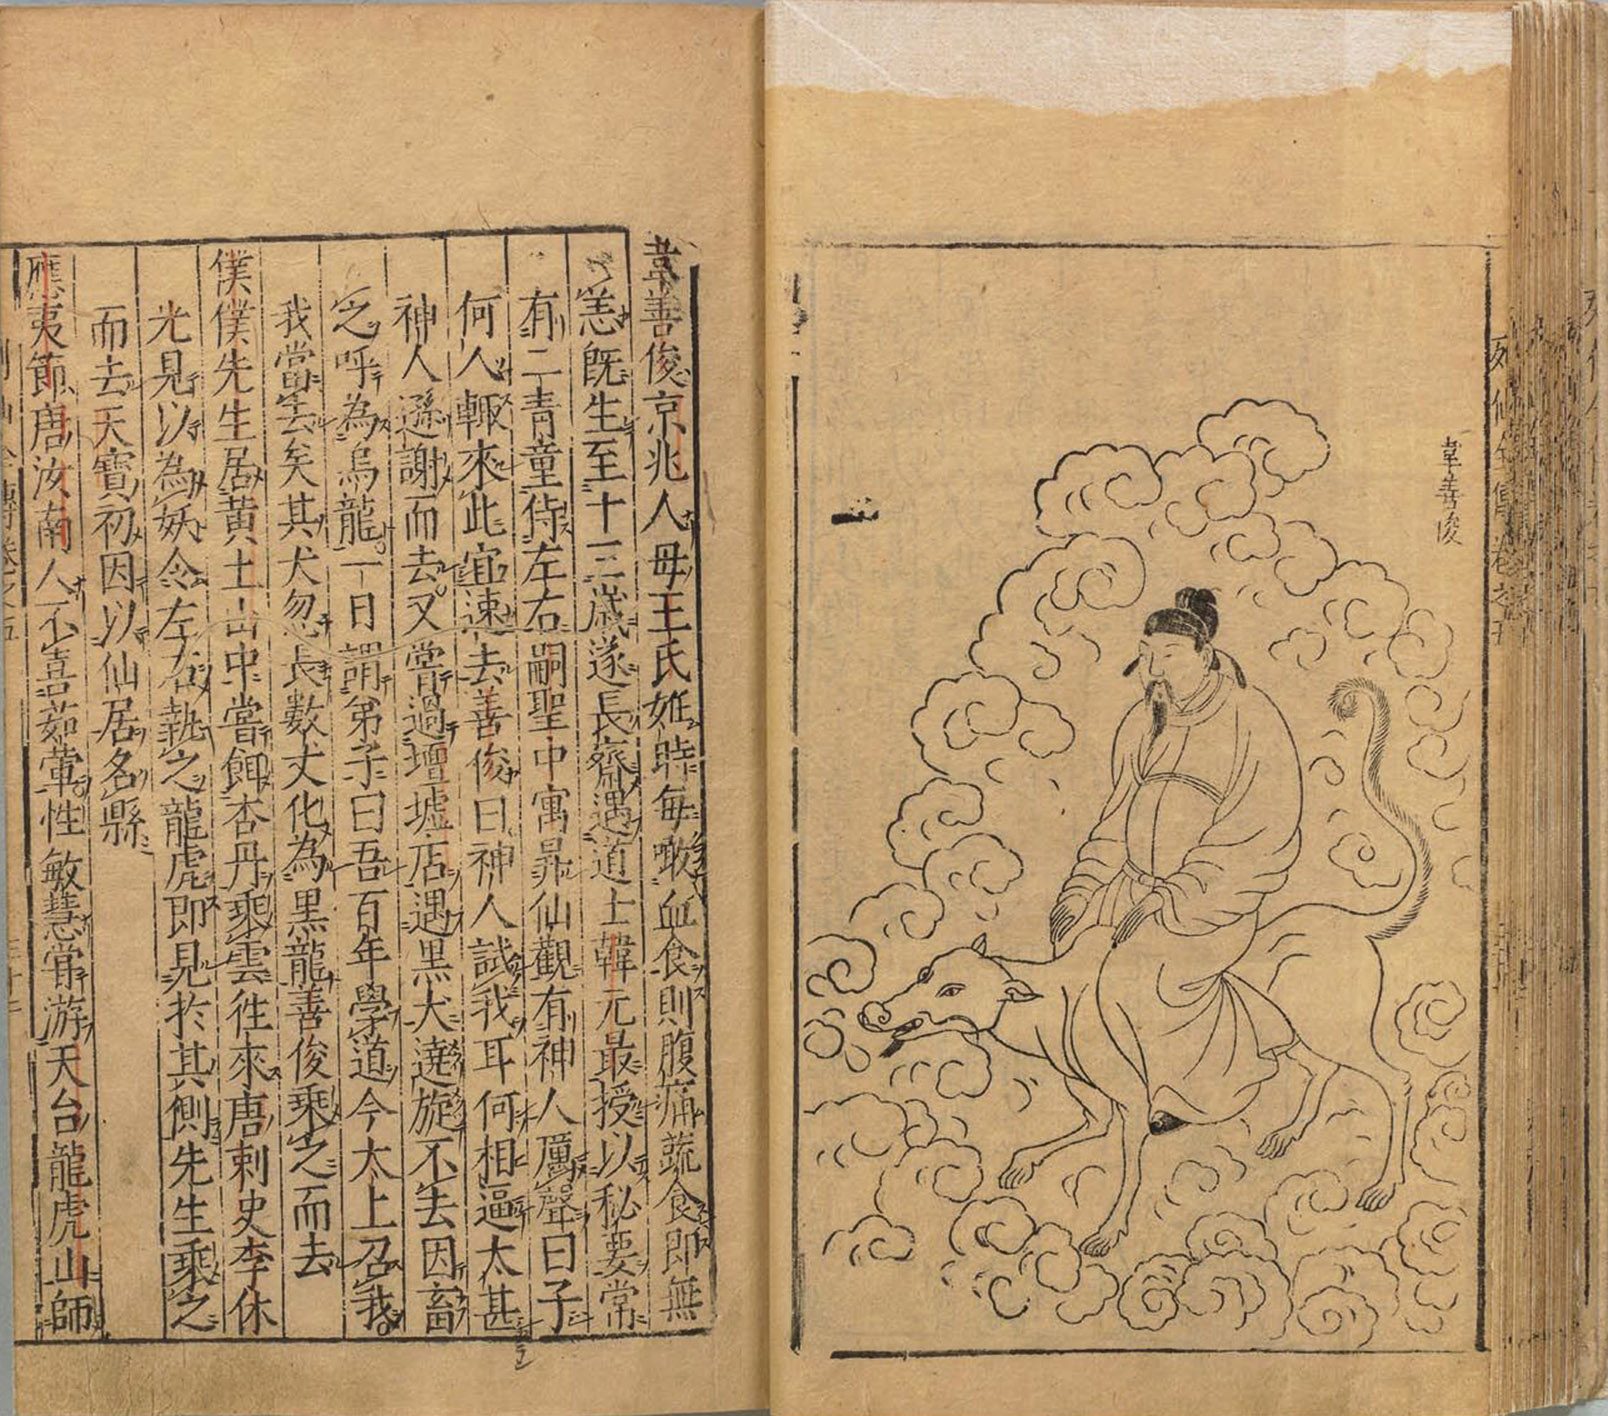 韋善俊
列仙全傳卷之五
韋善俊京兆人母王氏姙時每噉血食則腹痛蔬食即無
恙既生至十三歲遂長齋遇道士韓元最授以秘要常
有二青童侍左右嗣聖中寓昇仙觀有神人厲聲曰子
何人輙來此宜速去善俊曰神人試我耳何相逼太甚
神人遜謝而去又嘗過壇墟店遇黑犬遶旋不去因畜
之呼為烏龍一日謂弟子曰吾百年學道今太上召我
我當去矣其犬忽長數丈化為黑龍善俊乘之而去
僕僕先生居黄土山中嘗餌杏丹乘雲徃來唐刺史李休
光見以為妖令左右執之龍虎即見於其側先生乘之
而去天寶初因以仙居名縣
應夷節唐汝南人不喜茹葷性敏慧常游天台龍虎山師
列仙全傳卷之五